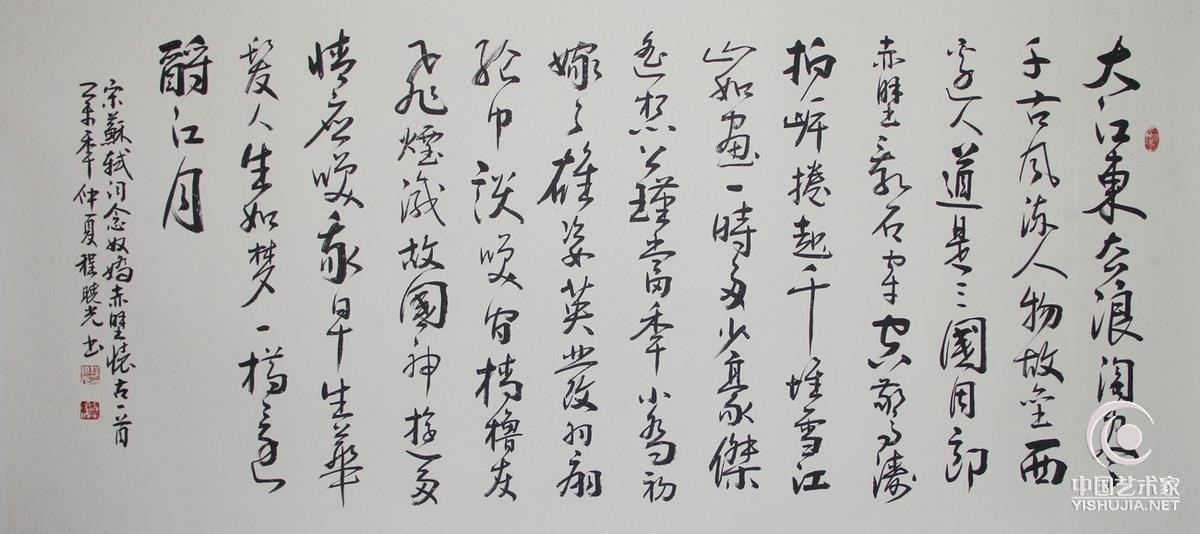 大江東去浪淘盡
千古風流人物故壘西
邊人道是三國周郎
赤壁亂石穿空驚濤
拍岸捲起千堆雪江
山如畫一時多少豪傑
遙想公瑾當年小喬初
嫁了雄姿英發羽扇
綸巾談笑間檣櫓灰
飛煙滅故國神遊多
情應笑我早生華
髮人生如夢一樽還
酹江月
宋蘇軾詞念奴嬌赤壁懷古一首
乙未年仲夏程曉光書
中国艺术家
YISHUJIA.NET